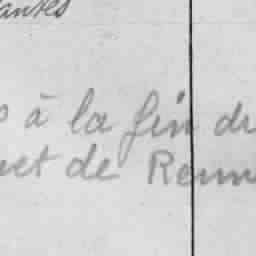 antes
à la fin du
et de Renn